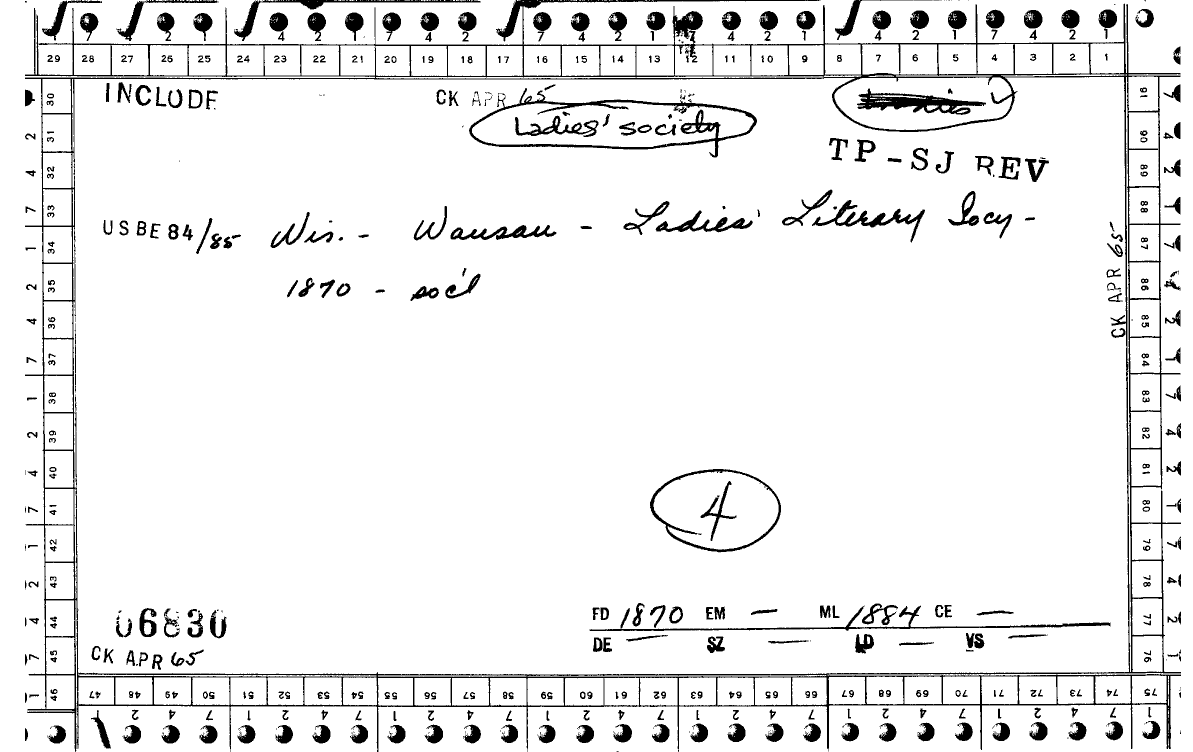 7 4 2 1 7 4 2 1 7 4 2 1 7 4 2 1 7 4 2 1
29 28 27 26 25 24 23 22 21 20 19 18 17 16 15 14 13 12 11 10 9 8 7 6 5 4 3 2 1
INCLUDE CK APR 65
Ladies' society
TP-SJ REV
USBE 84/85 Wis. - Wausau - Ladies' Literary Socy -
1870 - soc'l
4
06830
CK APR 65
FD 1870 EM — ML 1884 CE —
DE — SZ — LD — VS —
CK APR 65
30 31 32 33 34 35 36 37 38 39 40 41 42 43 44 45 46
91 90 89 88 87 86 85 84 83 82 81 80 79 78 77 76
47 48 49 50 51 52 53 54 55 56 57 58 59 60 61 62 63 64 65 66 67 68 69 70 71 72 73 74 75
1 2 4 7 1 2 4 7 1 2 4 7 1 2 4 7 1 2 4 7 1 2 4 7 1 2 4 7 1